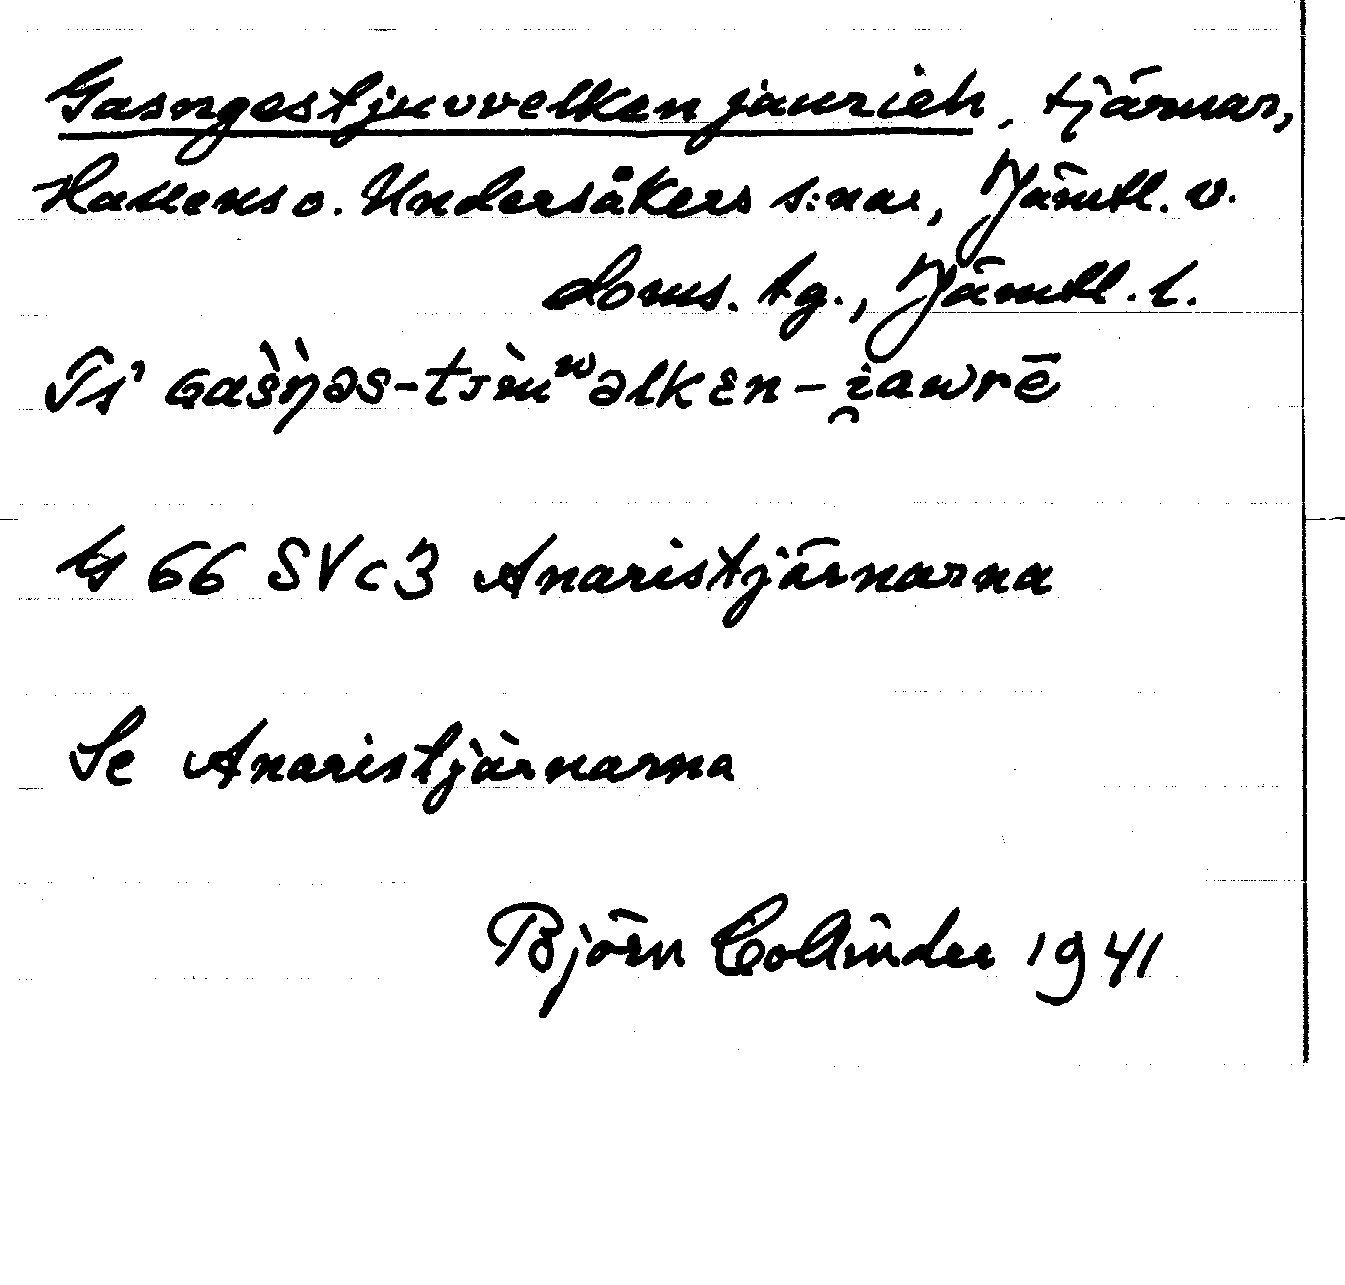 Gasngestjuvvelken jaurieh, tjärnar,
Hallens o. Undersåkers s:nar, Jämtl. v.
doms. tg., Jämtl. l.
Gaṡŋəs- -i̯awrē
66 SV c 3 Anaristjärnarna
Se Anaristjärnarna
Björn Collinder 1941